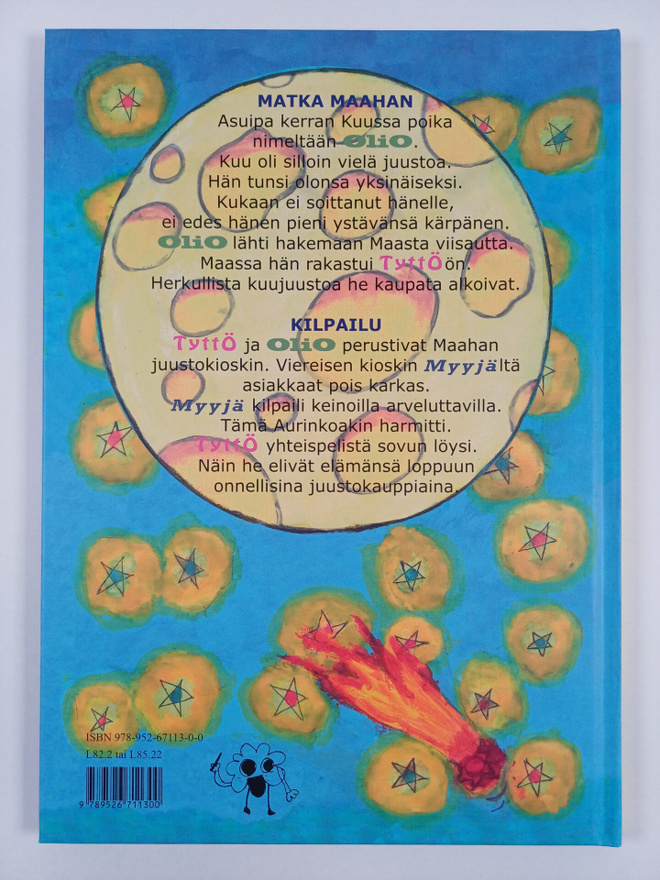 MATKA MAAHAN
Asuipa kerran Kuussa poika
nimeltään OliO.
Kuu oli silloin vielä juustoa.
Hän tunsi olonsa yksinäiseksi.
Kukaan ei soittanut hänelle,
ei edes hänen pieni ystävänsä kärpänen.
OliO lähti hakemaan Maasta viisautta.
Maassa hän rakastui TyttÖön.
Herkullista kuujuustoa he kaupata alkoivat.
KILPAILU
TyttÖ ja OliO perustivat Maahan
juustokioskin. Viereisen kioskin Myyjältä
asiakkaat pois karkas.
Myyjä kilpaili keinoilla arveluttavilla.
Tämä Aurinkoakin harmitti.
TyttÖ yhteispelistä sovun löysi.
Näin he elivät elämänsä loppuun
onnellisina juustokauppiaina.
ISBN 978-952-67113-0-0
L82.2 tai L85.22
9 789526 711300